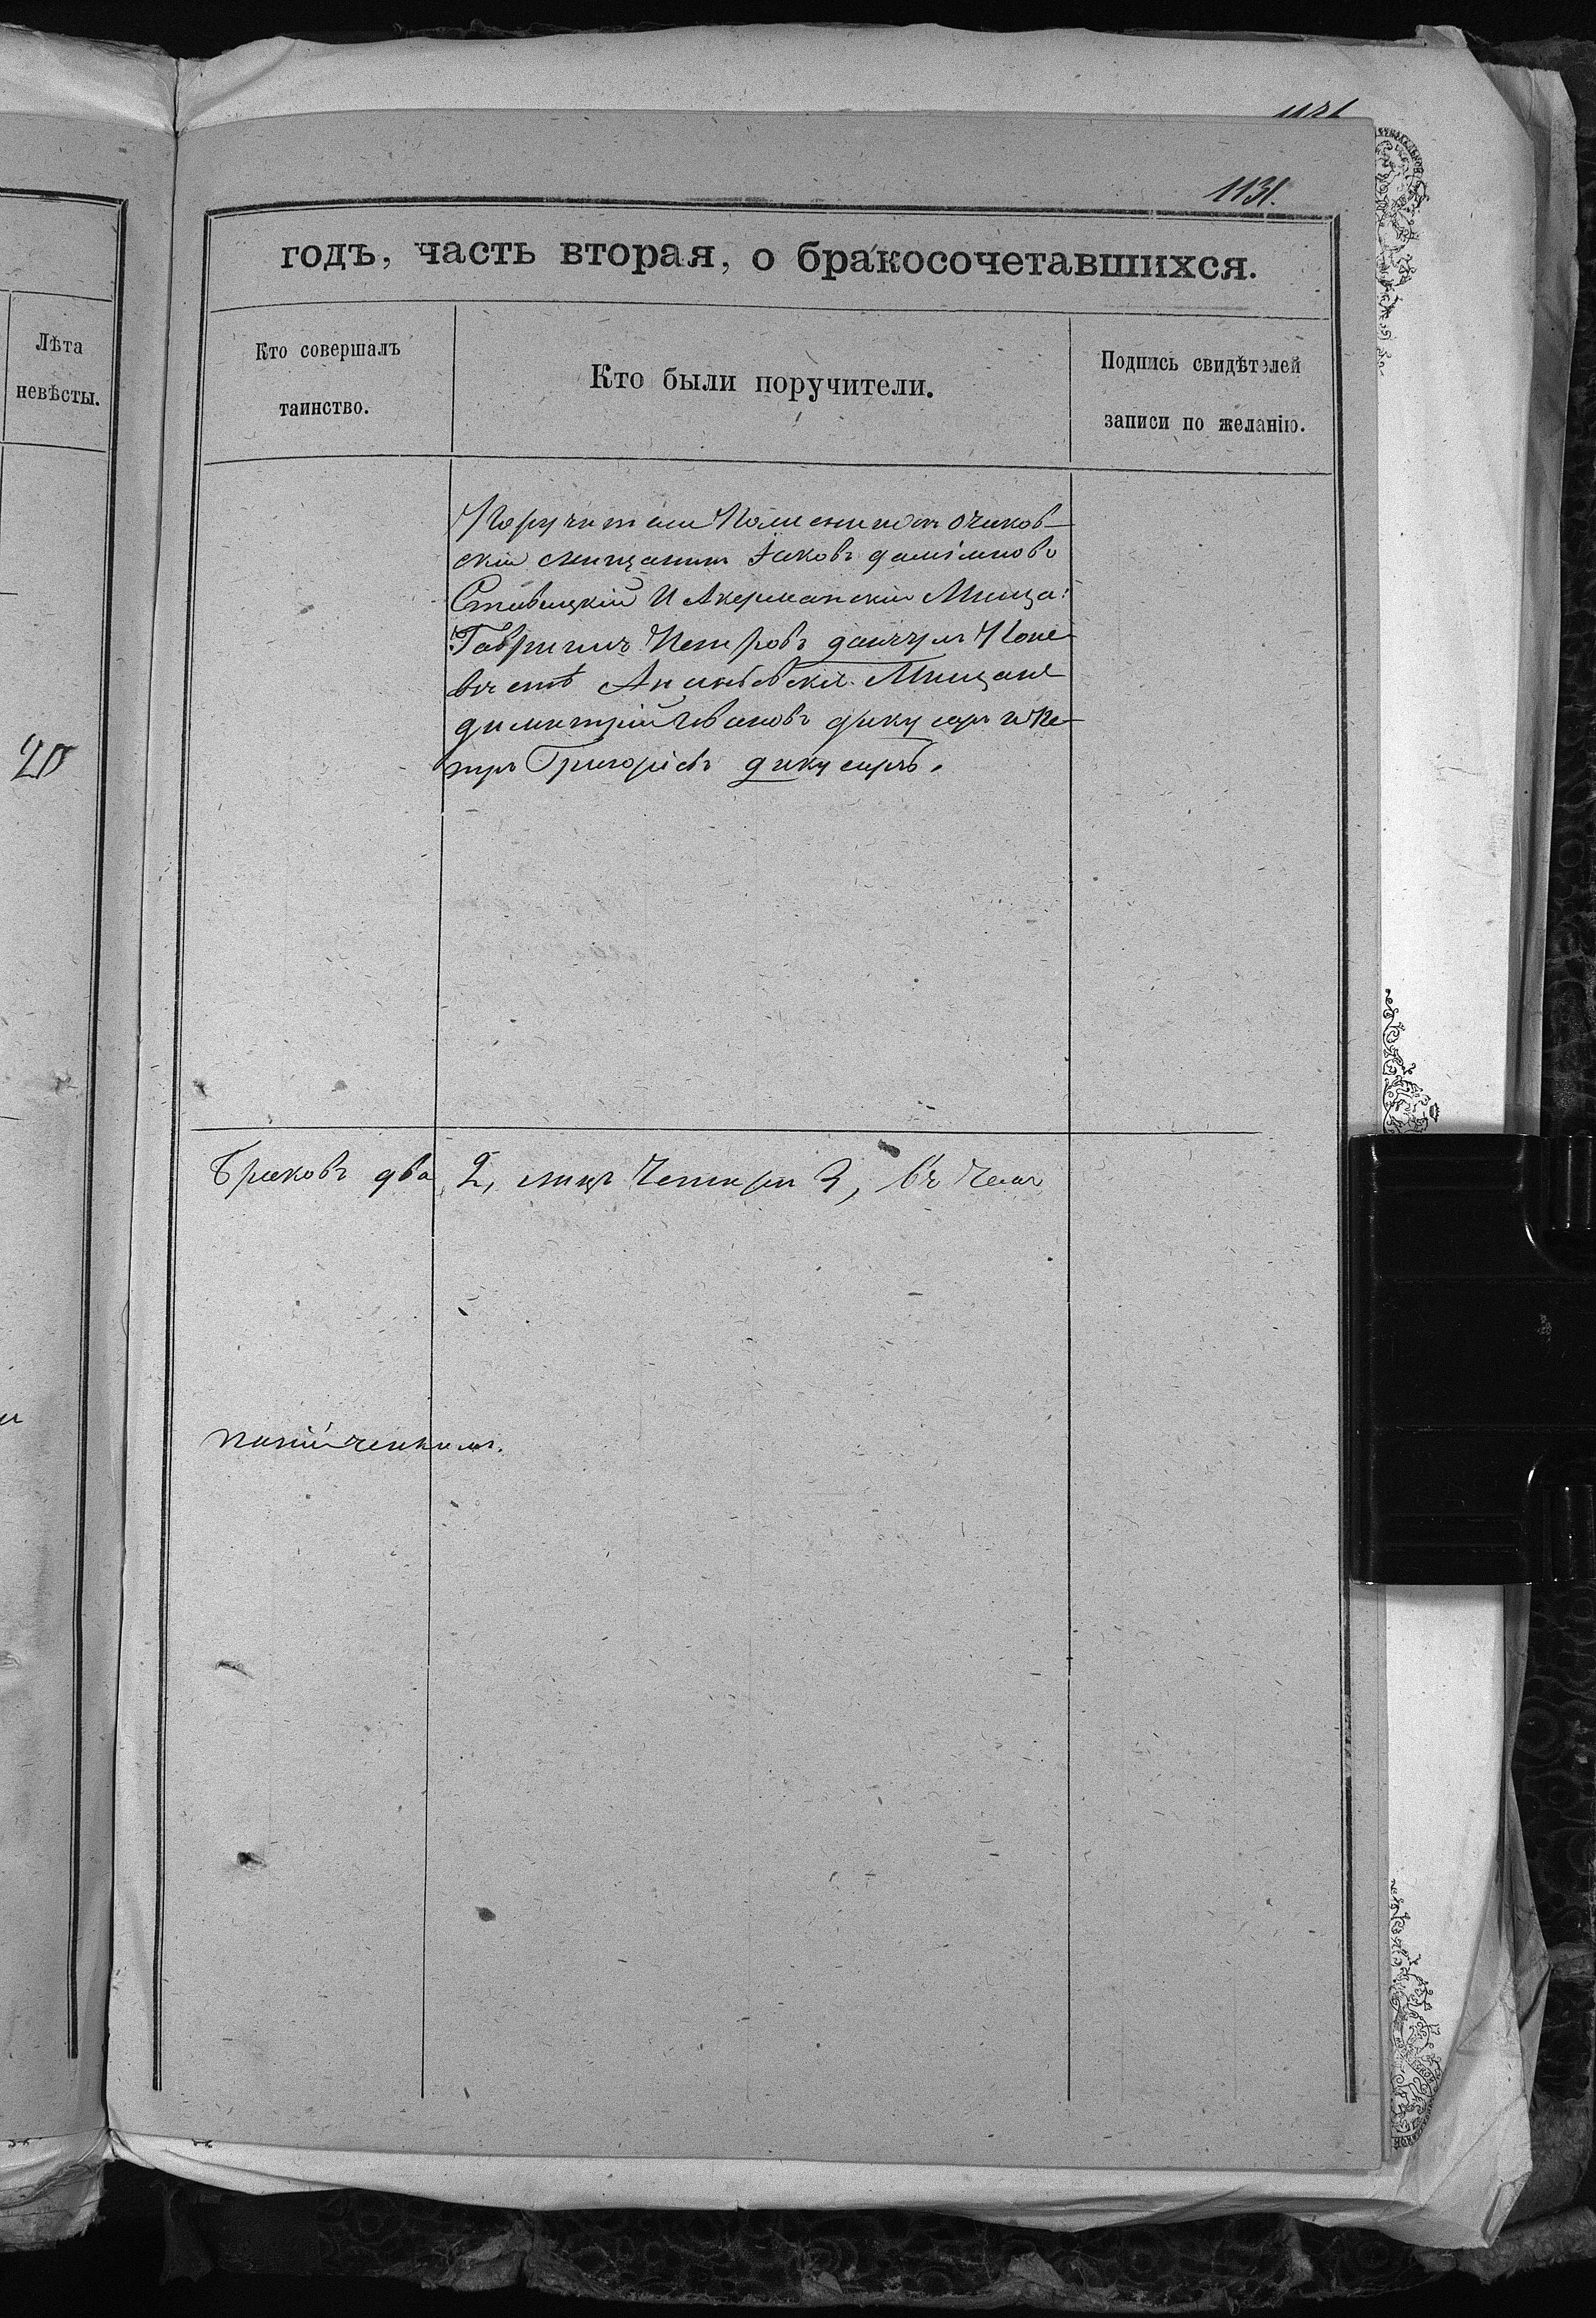 1131.
годъ, часть вторая, о бракосочетавшихся.
Лѣта
невѣсты.
Кто совершалъ
таинство.
Кто были поручители.
Подпись свидѣтелей
записи по желанію.
Поручители По женихѣ Очаков-
скій мѣщанинъ Іаковъ
Ставицкій И Акерманскій Мѣща:
Гавріилъ Петровъ По не
вѣстѣ Ананьевскіе Мѣщане
Димитрій Ивановъ Дикусаръ и Пе-
тръ Григоріевъ Дикусаръ.
20
Браковъ два 2, лицъ Четыри, въ чемъ